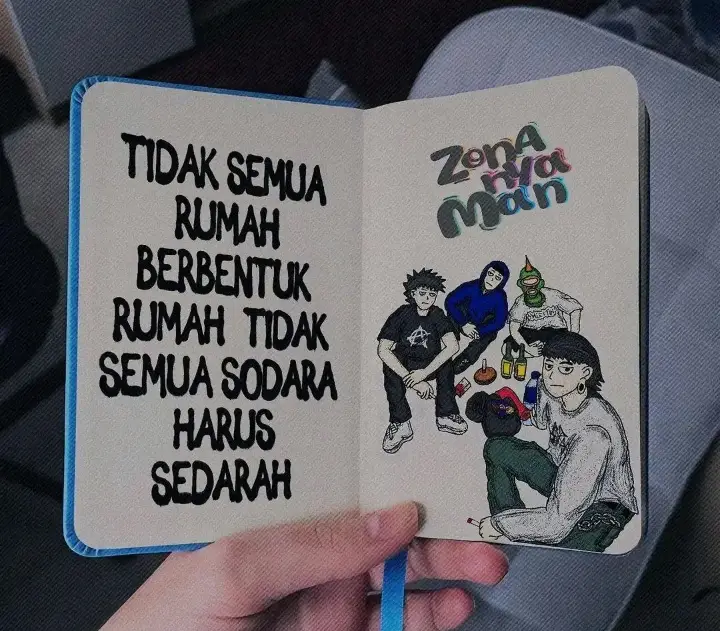 TIDAK SEMUA
RUMAH
BERBENTUK
RUMAH TIDAK
SEMUA SODARA
HARUS
SEDARAH
ZonA
nya
Man